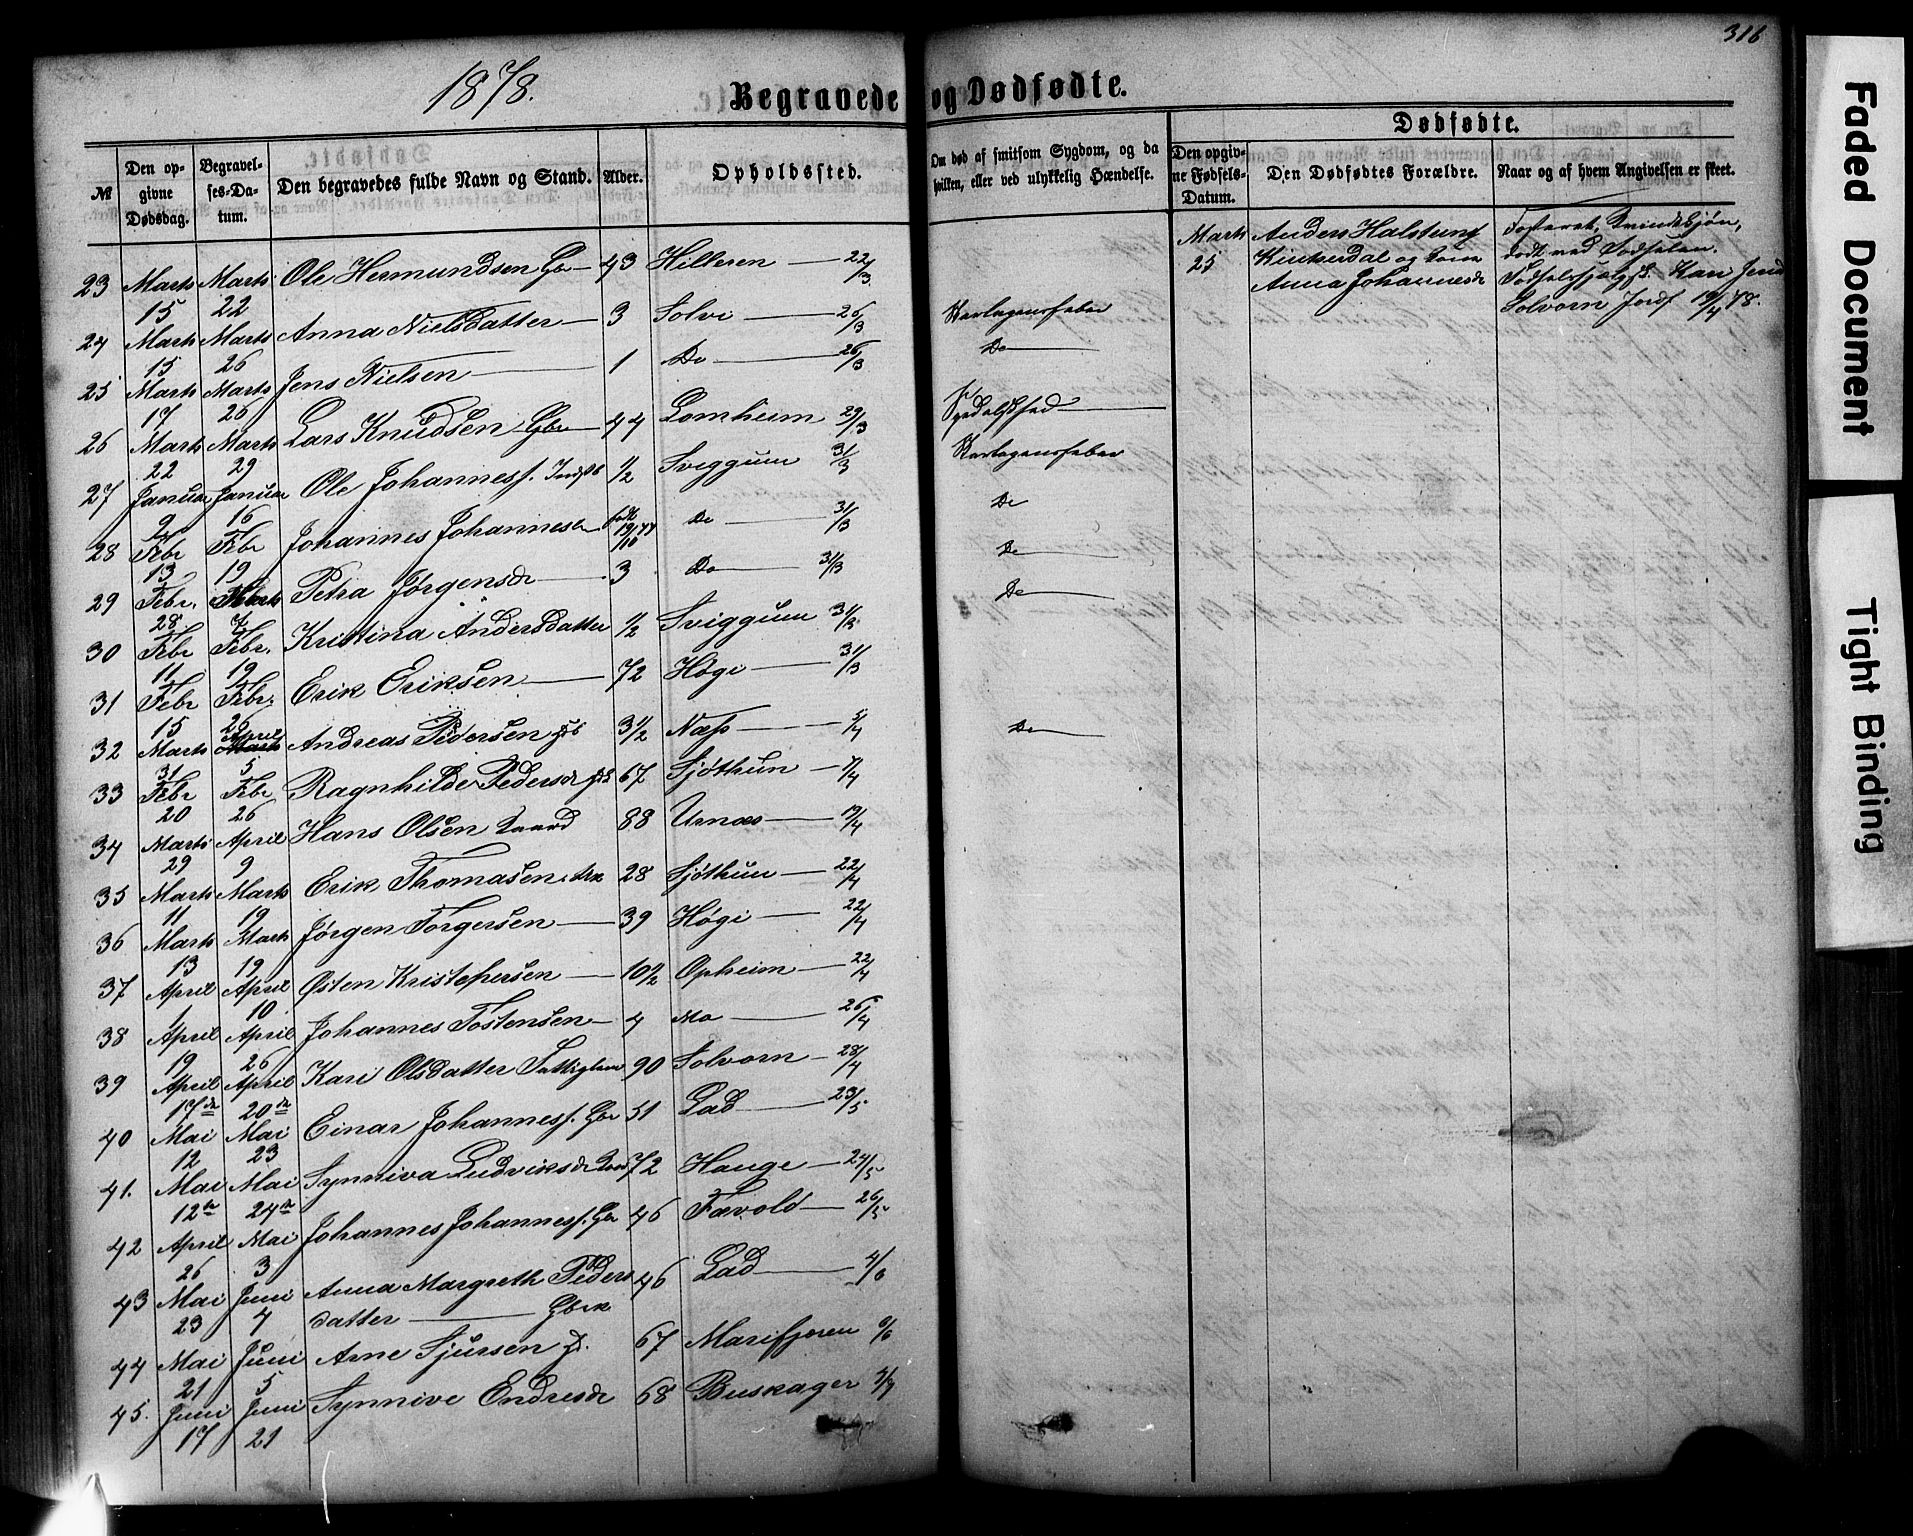 316
1878.
Begravede og Dødfødte.
Dødfødte.
№
Den opgivne Dødsdag.
Begravelses-Datum.
Den begravedes fulde Navn og Stand.
Alder.
Opholdssted.
Om død af smitsom Sygdom, og da hvilken, eller ved ulykkelig Hændelse.
Den opgivne Fødsels-Datum.
Den Dødfødtes Forældre.
Naar og af hvem Angivelsen er skeet.
23 Marts 15 Marts 22 Ole Hermundsen Gbr 43 Hilleren 22/3
24 Marts 15 Marts 26 Anna Nielsdatter 3 Solvi 26/3 Skarlagensfeber
25 Marts 17 Marts 26 Jens Nielsen 1 Do 26/3 Do
26 Marts 22 Marts 29 Lars Knudsen Gbr 44 Lomheim 29/3 Spedalskhed
27 Januar 9 Januar 16 Ole Johannesf. 1/2 Sviggum 31/3 Skarlagensfeber
28 Febr 13 Febr 19 Johannes Johannesen født 19/10 77 Do 31/3 Do
29 Febr. 28 Marts 7 Petra Jørgensdr 3 Do 31/3 Do
30 Febr 11 Febr. 19 Kristina Andersdatter 1/2 Sviggum 31/3 Do
31 Febr 15 Febr. 26 Erik Eriksen 72 Høgi 31/3
32 Marts 31 April 5 Andreas Pedersen 3 1/2 Næss 5/4 Do
33 Febr 20 Febr 26 Ragnhilde Pedersdr 67 Sjøthun 7/4
34 Marts 29 April 9 Hans Olsen Kaard 88 Urnæs 19/4
35 Marts 11 Marts 19 Erik Thomasen 28 Sjøthun 22/4
36 Marts 13 Marts 19 Jørgen Torgersen 39 Høgi 22/4
37 April 1 April 10 Østen Kristophersen 10 1/2 Opheim 22/4
38 April 19 April 26 Johannes Tostensen 4 Mo 26/4
39 April 17de April 20de Kari Olsdatter 90 Solvorn 28/4
40 Mai 12 Mai 23 Einar Johannesf. Gbr 51 Lad 23/5
41. Mai 12te Mai 24de Synniva Ludviksdr 72 Hauge 24/5
42 April 26 Mai 3 Johannes Johannesf. Gbr 46 Fævold 26/5
43 Mai 23 Juni 4 Anna Margreth Peders
datter Gbrk 46 Lad 4/6
44 Mai 21 Juni 5 Arne Sjursen 67 Marifjæren 6/6
45. Juni 17 Juni 21 Synnive Endresdr 68 Buskager 7/7
Marts 25
Anders Halstens
Kinserdal og Kone
Anna Johannesdr
Fosteret, Kvindekjøn,
dødt ved Fødselen.
Fødselshjælpsk. Kari
Solvorn Jordf 19/4 78.
Faded Document
Tight Binding